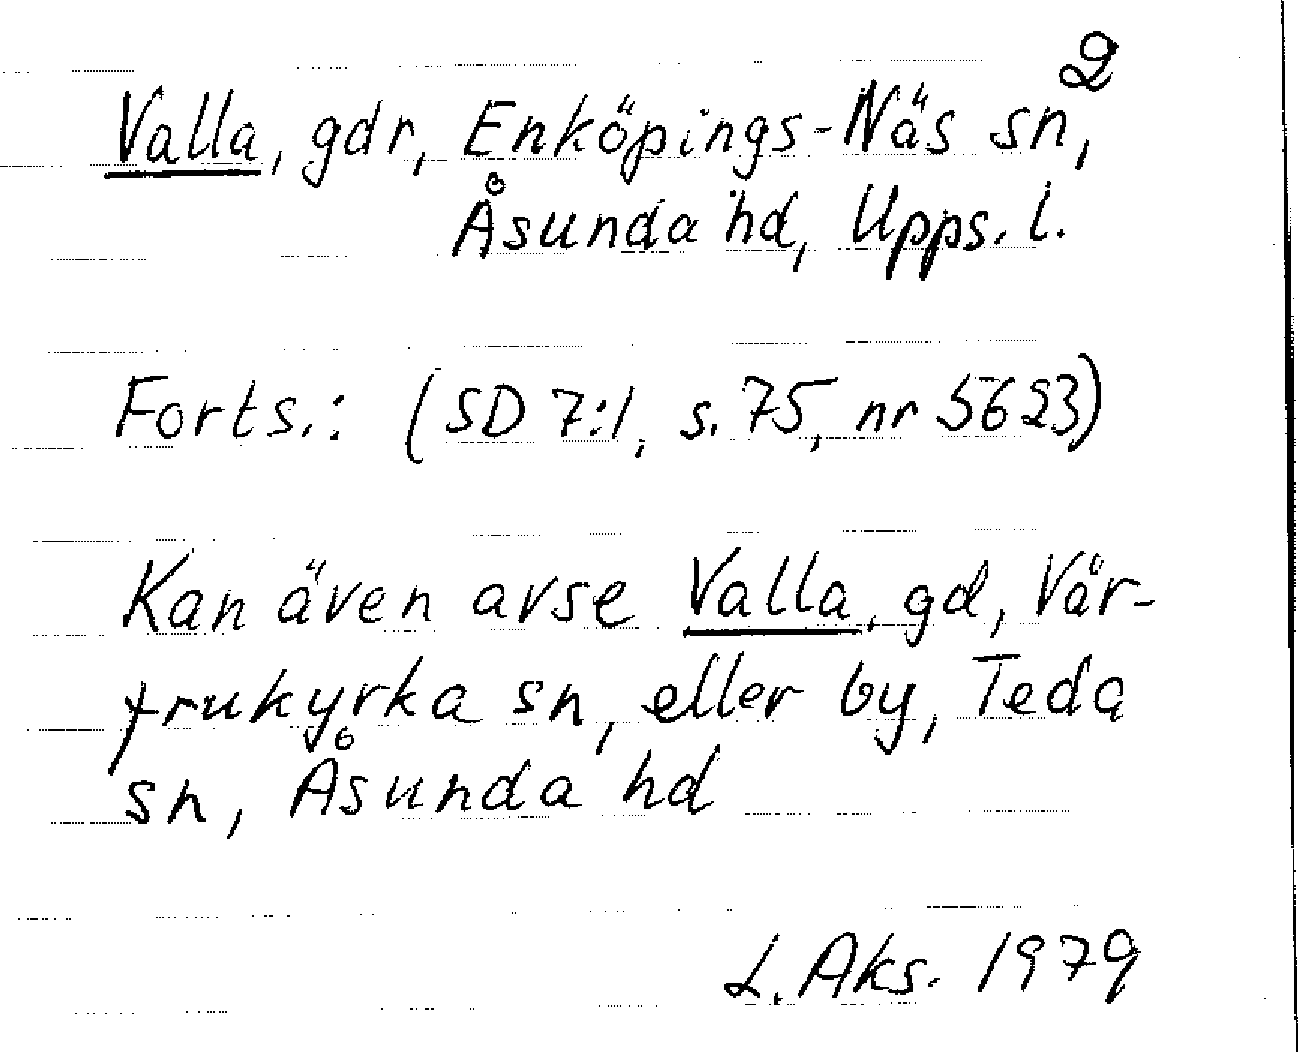 2
Valla, gdr, Enköpings-Näs sn,
Åsunda hd, Upps. l.
Forts.: (SD 7:1, s. 75, nr 5623)
Kan även avse Valla, gd, Vår-
frukyrka sn, eller by, Teda
sn, Åsunda hd
L. Aks. 1979